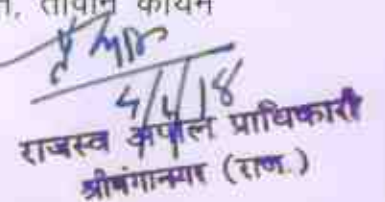 तावान कायम
4/4/18
राजस्व अपील प्राधिकारी
श्रीगंगानगर (राज.)